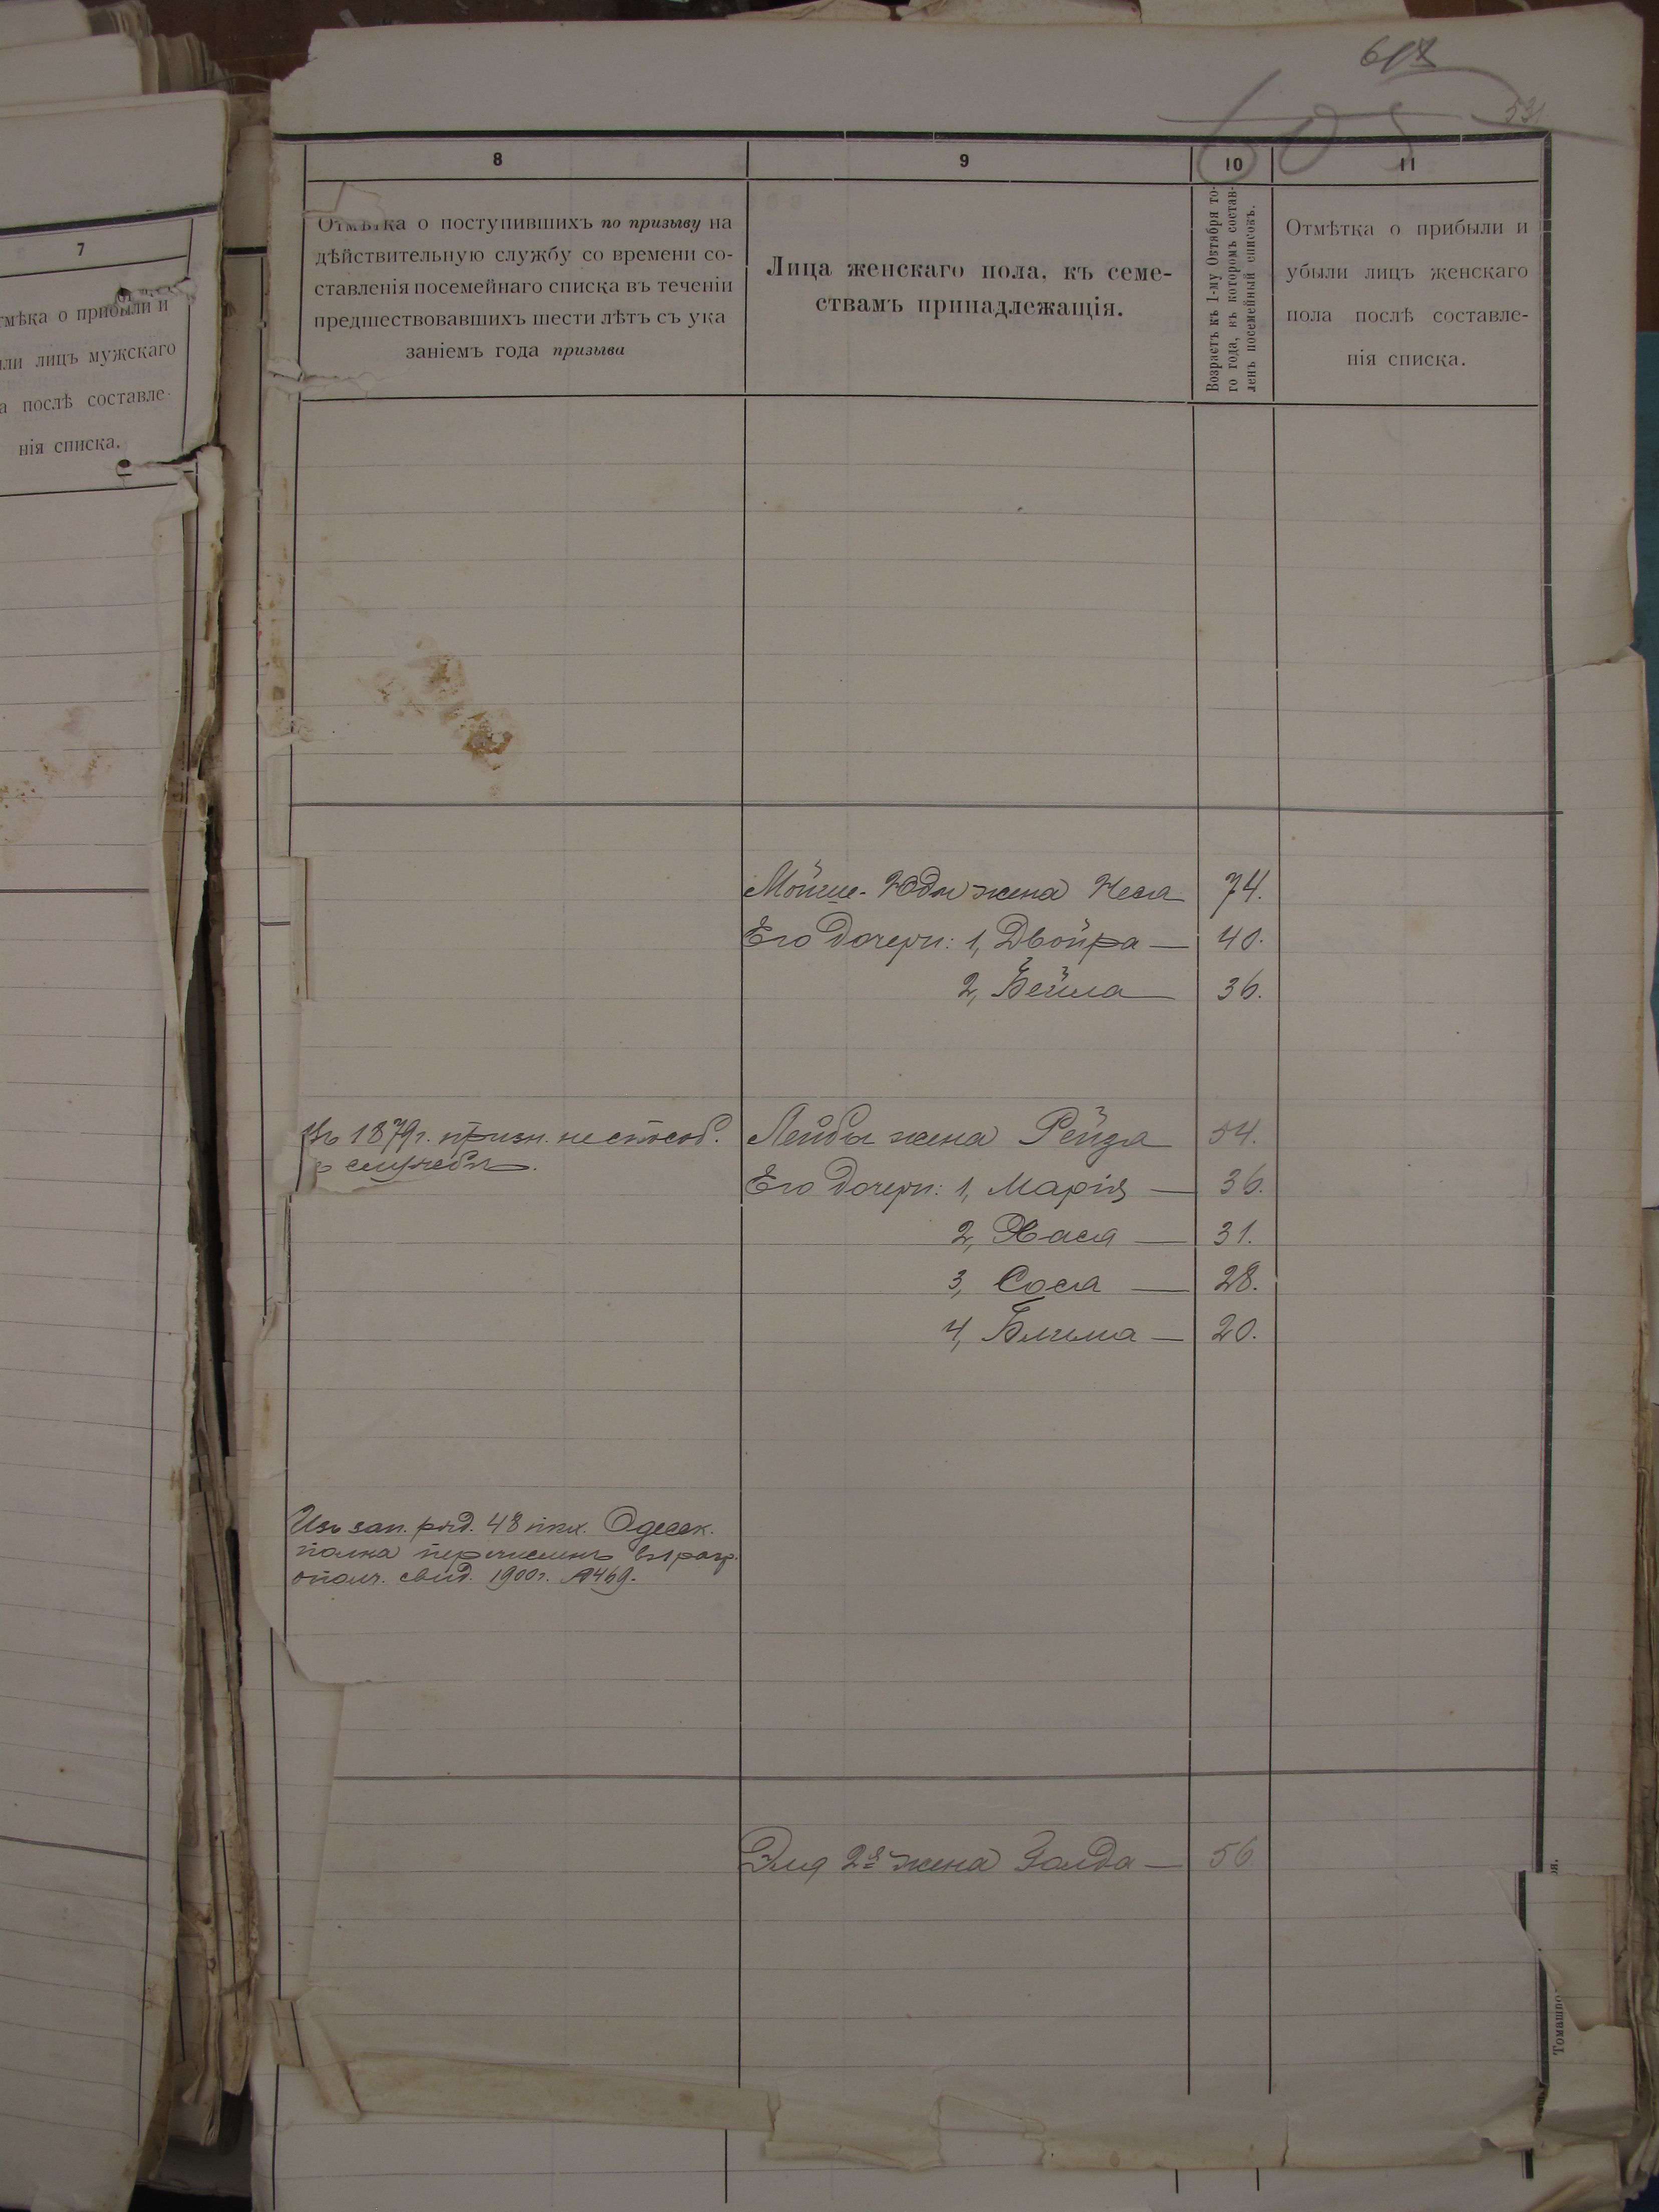 618
605
53
7
тмѣка о прибыли и
или лицъ мужскаго
а послѣ составле-
нія списка.
8
Отмѣтка о поступившихъ по призыву на
дѣйствительную службу со времени со-
ставленія посемейнаго списка въ теченіи
предшествовавшихъ шести лѣтъ съ ука
заніемъ года призыва
9
Лица женскаго пола, къ семе-
ствамъ принадлежащія.
10
Возрастъ къ 1-му Октября то-
го года, въ которомъ состав-
ленъ посемейный списокъ.
11
Отмѣтка о прибыли и
убыли лицъ женскаго
пола послѣ составле-
нія списка.
Мойше-Юды жена Неса 74.
Его дочери: 1, Двойра — 40.
2, Бейла — 36.
Въ 1879 г. призн. неспособ.
къ службѣ.
Лейбы жена Рейза 54.
Его дочери: 1, Марія — 36.
2, Хася — 31.
3, Сося — 28.
4, Блима — 20.
Изъ зап. ряд. 48 пѣх. Одесск.
полка перечисленъ въ 1 разр.
ополч. свид. 1900 г. №469.
Эля 2я жена Голда — 56
Томашпо